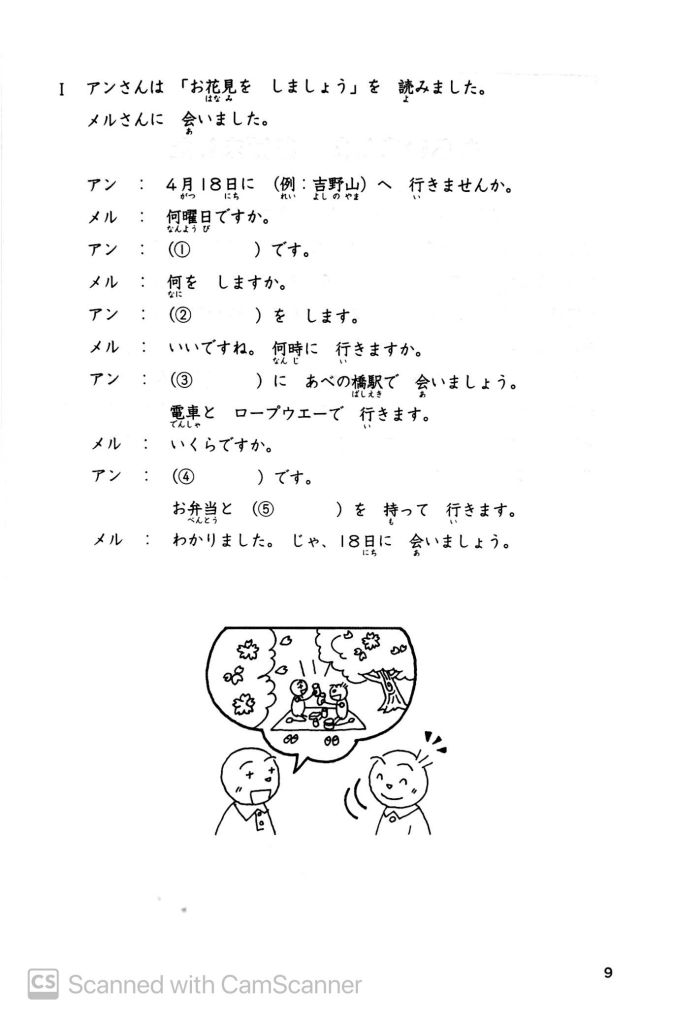 Ⅰ アンさんは 「お花見を しましょう」を 読みました。
はな み よ
メルさんに 会いました。
あ
アン : 4月18日に (例:吉野山)へ 行きませんか。
がつ にち れい よし の やま い
メル : 何曜日ですか。
なんようび
アン : (① )です。
メル : 何を しますか。
なに
アン : (② )を します。
メル : いいですね。何時に 行きますか。
なん じ い
アン : (③ )に あべの橋駅で 会いましょう。
ばしえき あ
電車と ロープウエーで 行きます。
でんしゃ い
メル : いくらですか。
アン : (④ )です。
お弁当と (⑤ )を 持って 行きます。
べんとう も い
メル : わかりました。じゃ、18日に 会いましょう。
にち あ
9
CS Scanned with CamScanner